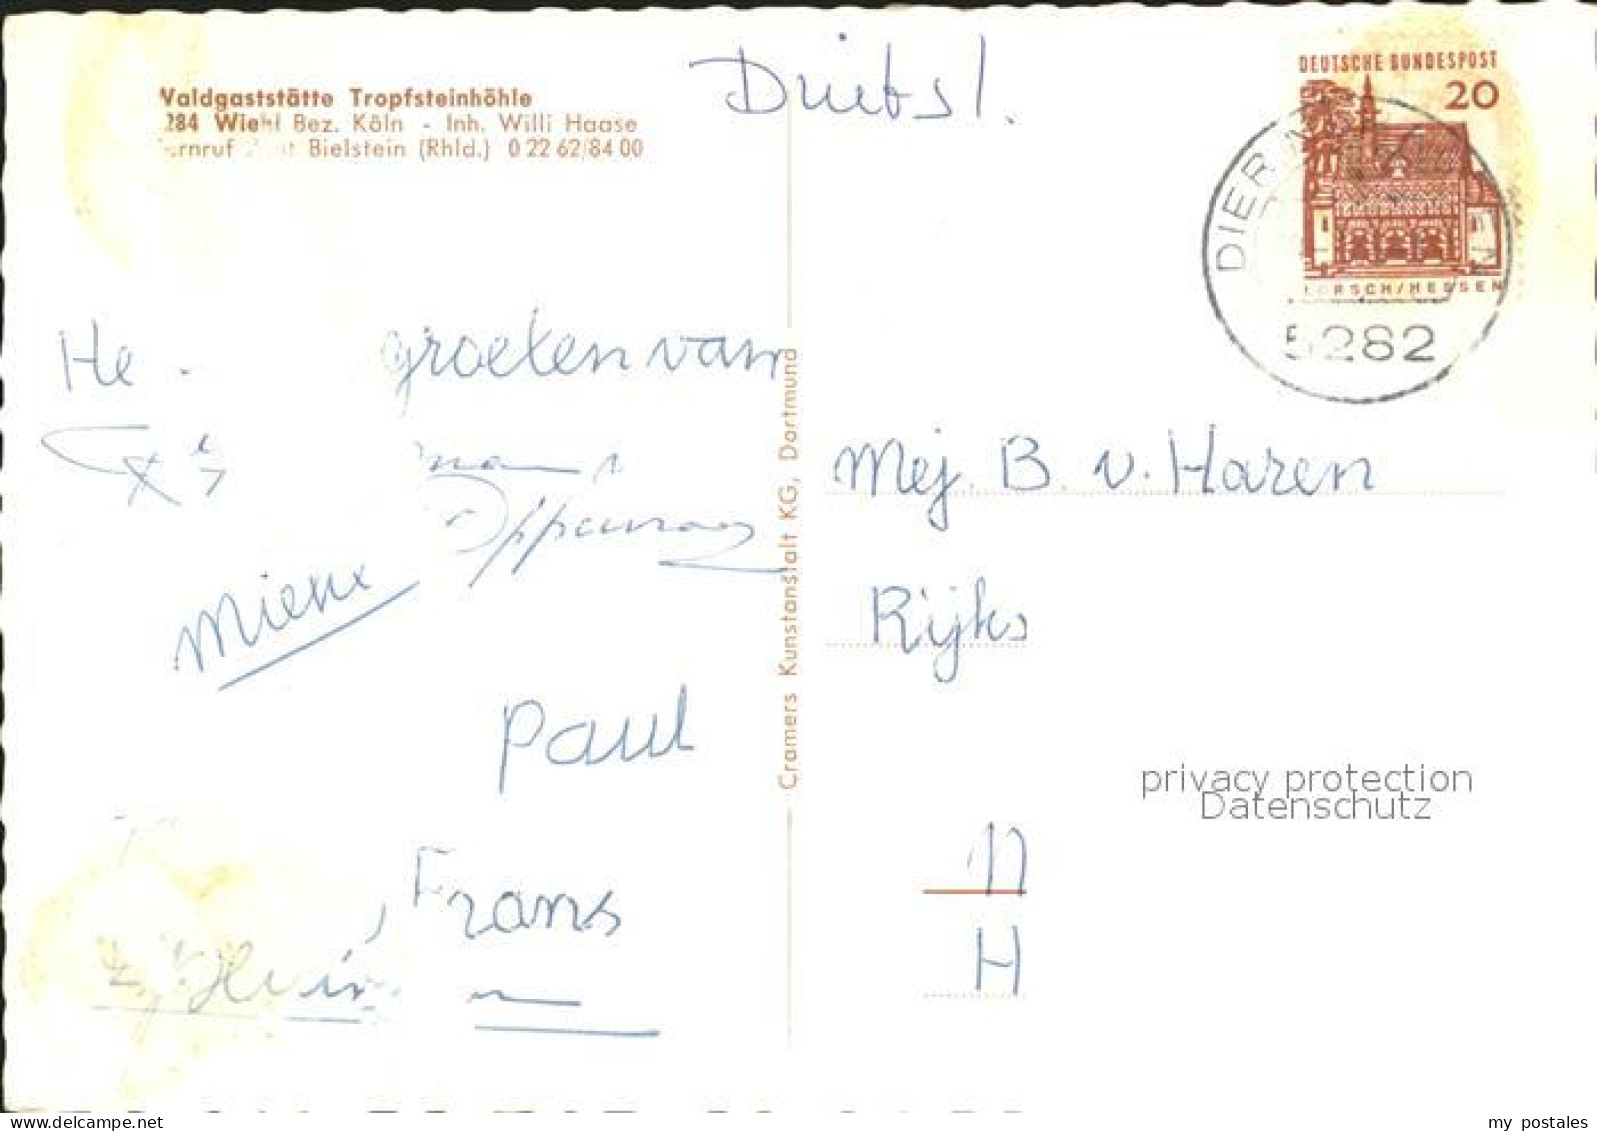 Duitsl.
Valdgaststätte Tropfsteinhöhle
284 Wiehl Bez. Köln - Inh. Willi Haase
ernruf Bielstein (Rhld.) 0 22 62/84 00
DEUTSCHE BUNDESPOST
20
LORSCH/HESSEN
DIER
5282
He groeten van
Mej. B. v. Haren
Rijks
Miene
Paul
Frans
N
H
Cramers Kunstanstalt KG, Dortmund
privacy protection
Datenschutz
www.delcampe.net
my_postales